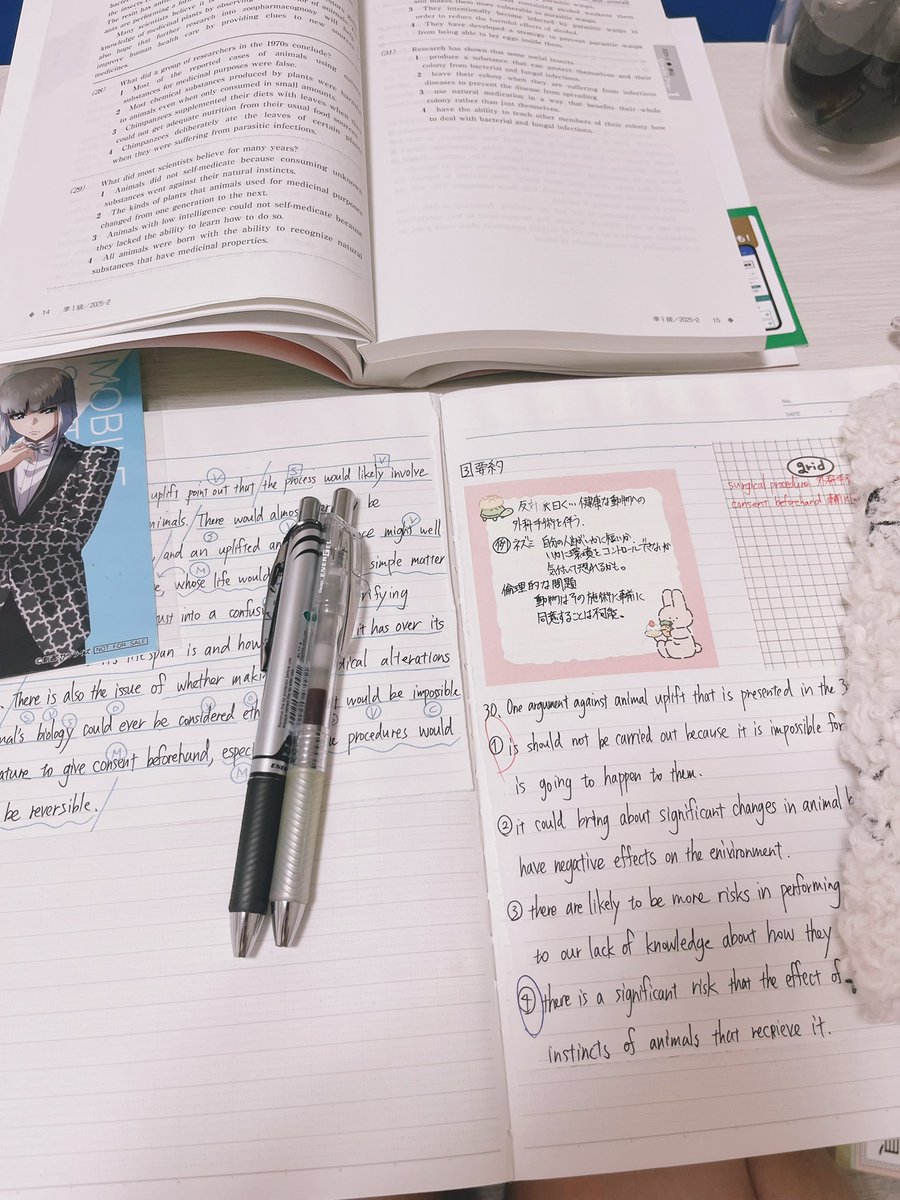 Many scientists believe it
knowledge of medicinal plants by observing
also hope that further research into zoopharmacognosy will
improve human health care by providing clues to new
medicines.
(28) What did a group of researchers in the 1970s conclude?
1 Most of the reported cases of animals using
substances for medicinal purposes were false.
2 Most chemical substances produced by plants were harmful
to animals even when only consumed in small amounts.
3 Chimpanzees supplemented their diets with leaves when they
could not get adequate nutrition from their usual food sources.
4 Chimpanzees deliberately ate the leaves of certain plants
when they were suffering from parasitic infections.
(29) What did most scientists believe for many years?
1 Animals did not self-medicate because consuming unknown
substances went against their natural instincts.
2 The kinds of plants that animals used for medicinal purposes
changed from one generation to the next.
3 Animals with low intelligence could not self-medicate because
they lacked the ability to learn how to do so.
4 All animals were born with the ability to recognize natural
substances that have medicinal properties.
14 準1級/2025-2
and makes them more vulnerable to parasitic wasps
order to reduce the harmful effects of alcohol.
4 They have developed a strategy to prevent parasitic wasps
from being able to lay eggs inside them.
(31) Research has shown that some social insects
1 produce a substance that can protect themselves and their
colony from bacterial and fungal infections.
2 leave their colony when they are suffering from infectious
diseases to prevent the disease from spreading.
3 use natural medication in a way that benefits their whole
colony rather than just themselves.
4 have the ability to teach other members of their colony how
to deal with bacterial and fungal infections.
準1級/2025-2 15
MOBILE
NOT FOR SALE
uplift point out that the process would likely involve
nimals. There would almost be
and an uplifted might well
whose life would simple matter
ust into a confus ifying
span is and how it has over its
There is also the issue of whether maki dical alterations
mal's biology could ever be considered eth t would be impossible
ature to give consent beforehand, espec procedures would
be reversible.
ENERGEL
No.
DATE
3 要約
反対 米曰く… 健康な動物への
外科手術を伴う。
例 ネズミ 自分の人生がいかに短いか、
いかに環境をコントロールできないか
気付いて恐れるかも。
倫理的な問題
動物はその施術に事前に
同意することは不可能。
grid
surgical procedural 外科手
consent beforehand 事前に
30. One argument against animal uplift that is presented in the 3
① is should not be carried out because it is impossible for
is going to happen to them.
② it could bring about significant changes in animal b
have negative effects on the enivironment.
③ there are likely to be more risks in performing
to our lack of knowledge about how they
④ there is a significant risk that the effect of
instincts of animals that recrieve it.